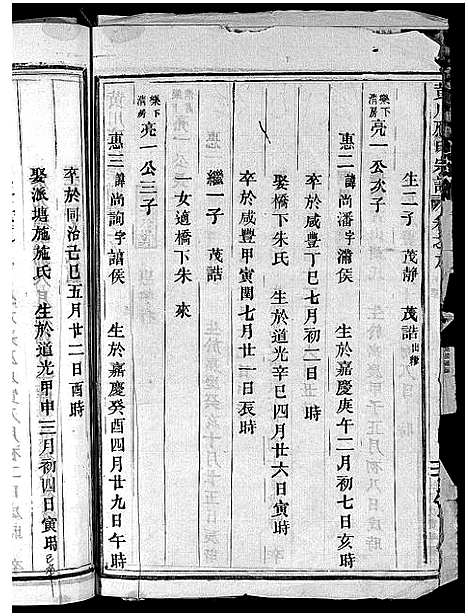 生二子 茂靜 茂誥出繼
樂下清房 亮一公次子
惠二 諱尚潘字瀟侯 生於嘉慶庚午二月初七日亥時
卒於咸豐丁巳七月初二日丑時
娶橋下朱氏 生於道光辛巳四月廿六日寅時
卒於咸豐甲寅閏七月廿一日辰時
繼一子 茂誥
一女適橋下朱來
樂下清房 亮一公三子
惠三 諱尚詢字諳侯 生於嘉慶癸酉四月廿九日午時
卒於同治己巳五月廿二日酉時
娶派塘施施氏 生於道光甲申三月初四日寅時